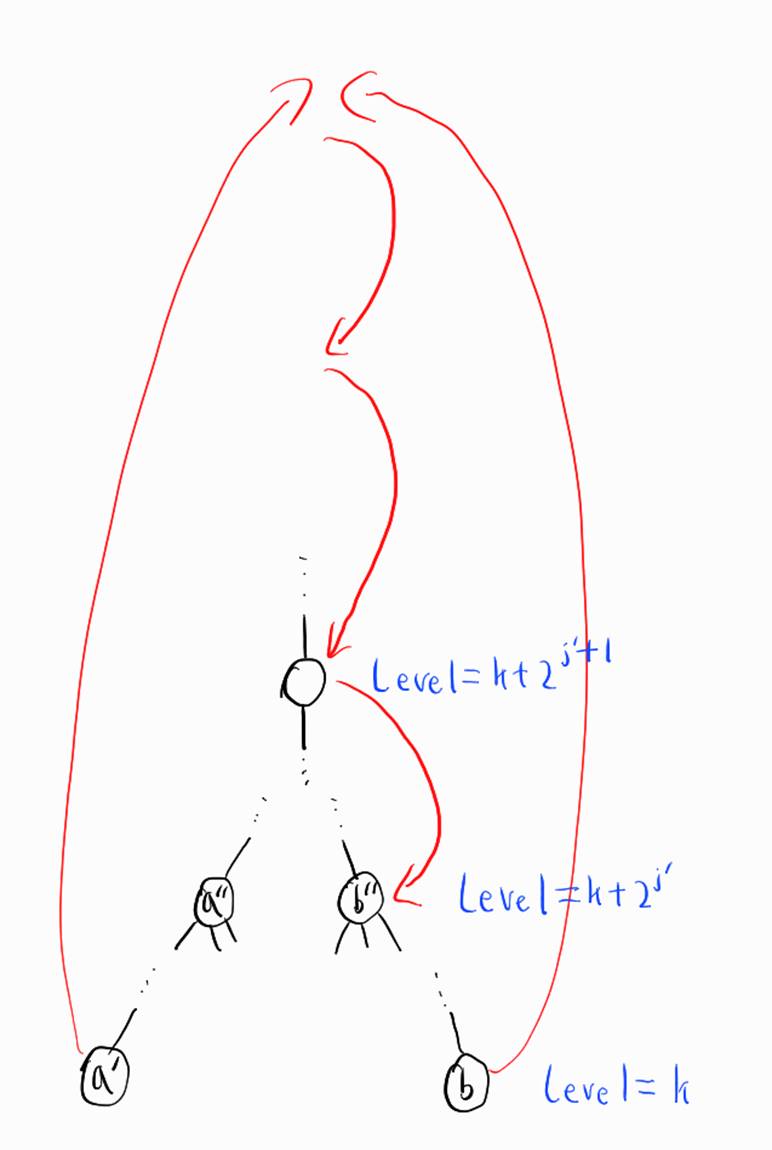 Level=k+2^{j'+1}
a'' b'' Level=k+2^{j'}
a' b Level=k